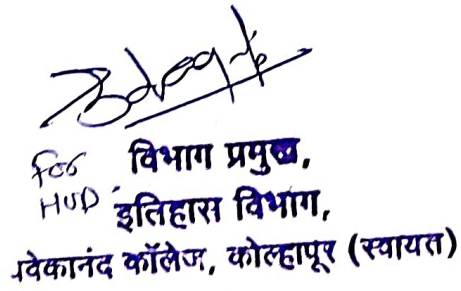 For विभाग प्रमुख,
HOD इतिहास विभाग,
विवेकानंद कॉलेज, कोल्हापूर (स्वायत्त)